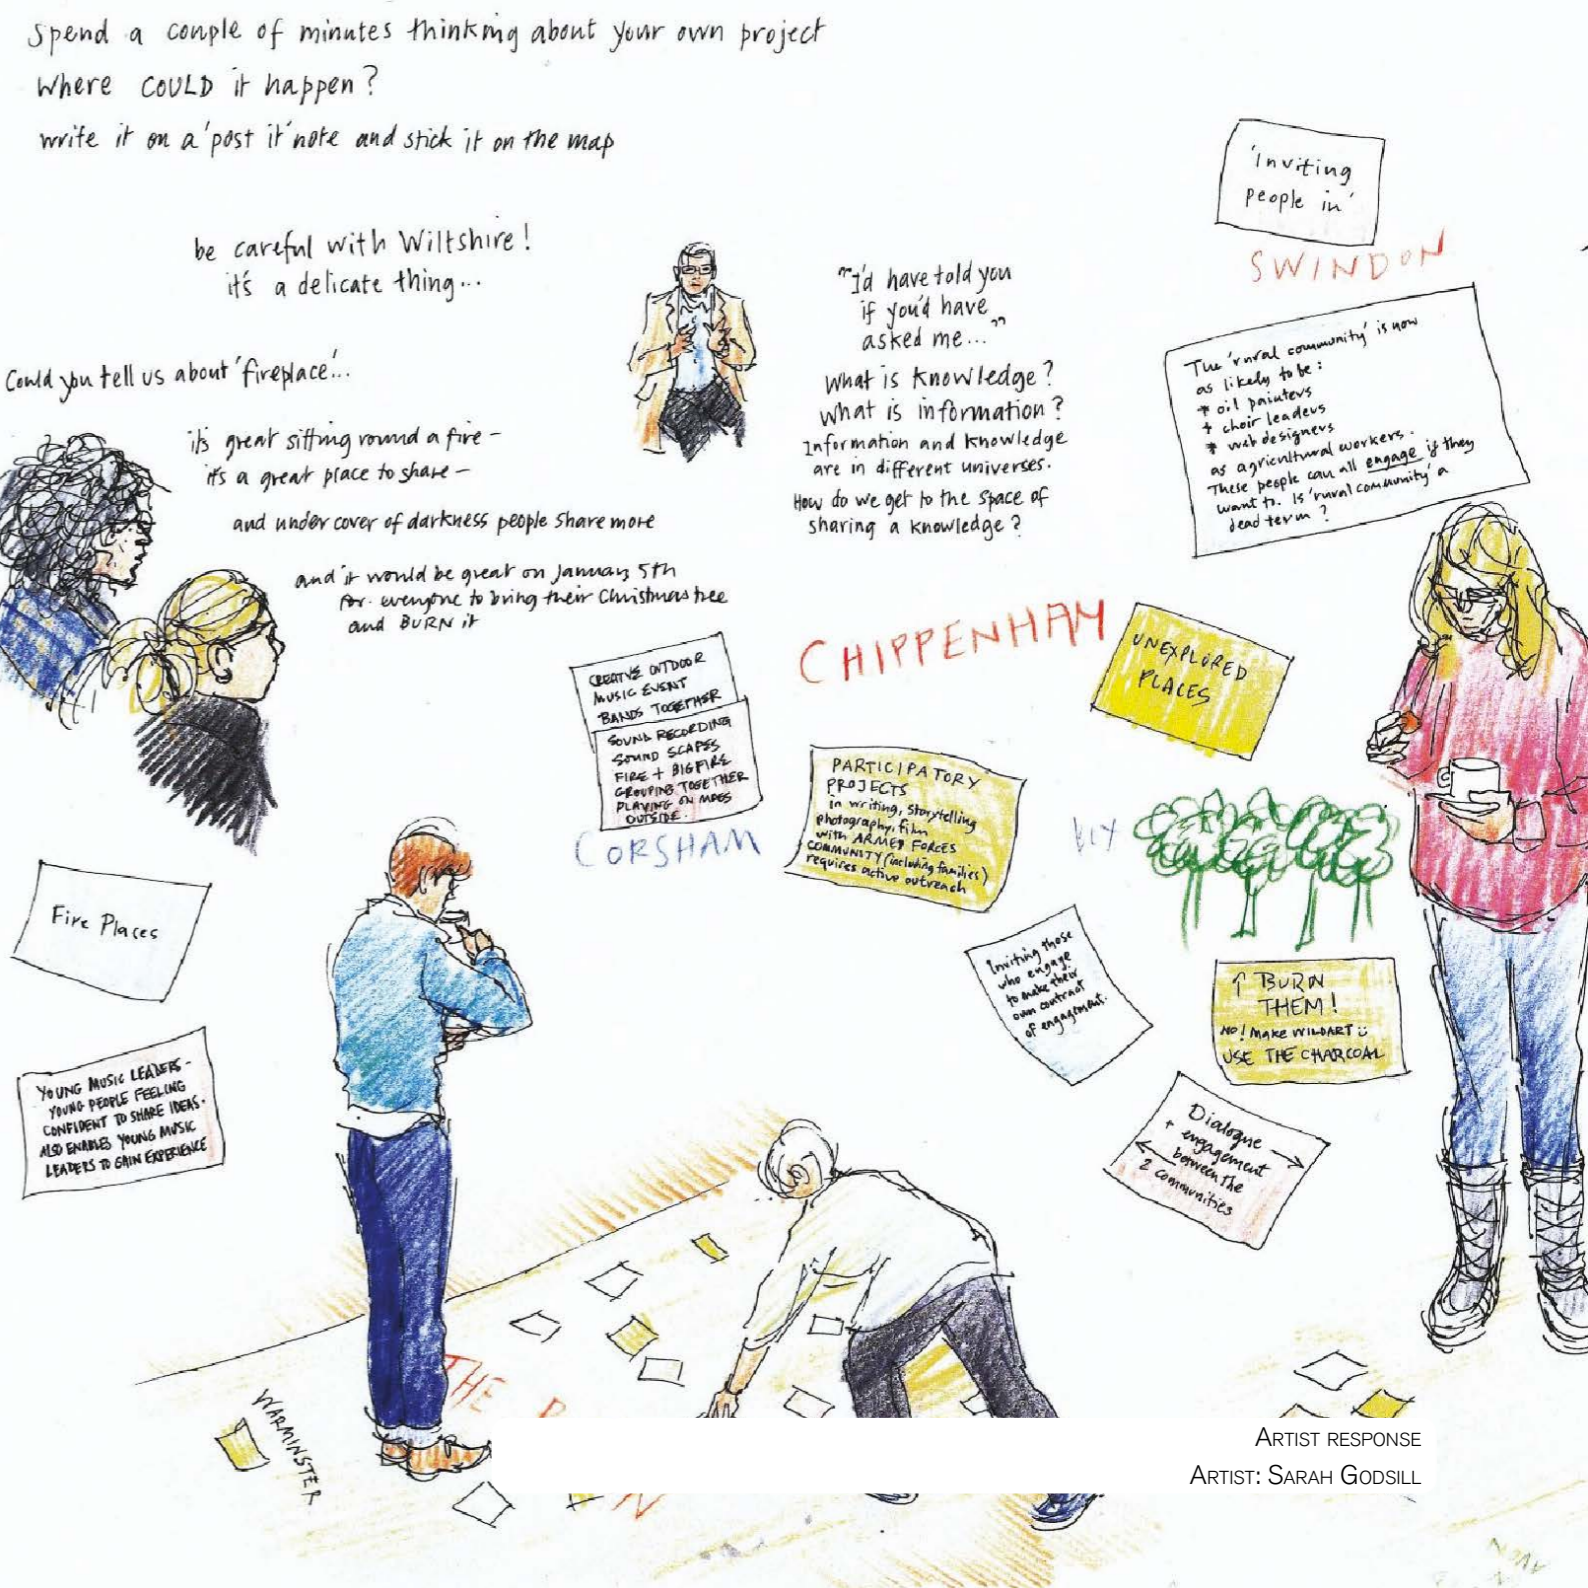 Spend a couple of minutes thinking about your own project
Where COULD it happen?
write it on a 'post it' note and stick it on the map
be careful with Wiltshire!
it's a delicate thing...
Could you tell us about 'fireplace'...
it's great sitting round a fire –
it's a great place to share –
and under cover of darkness people share more
and it would be great on January 5th
for everyone to bring their Christmas tree
and BURN it
"I'd have told you
if you'd have
asked me..."
What is knowledge?
What is information?
Information and knowledge
are in different universes.
How do we get to the space of
sharing a knowledge?
'Inviting
people in'
SWINDON
The 'rural community' is now
as likely to be:
* oil painters
+ choir leaders
* web designers
as agricultural workers.
These people can all engage if they
want to. Is 'rural community' a
dead term?
CHIPPENHAM
UNEXPLORED
PLACES
CREATIVE OUTDOOR
MUSIC EVENT
BANDS TOGETHER
SOUND RECORDING
SOUND SCAPES
FIRE + BIG FIRE
GROUPING TOGETHER
PLAYING ON
OUTSIDE.
CORSHAM
PARTICIPATORY
PROJECTS
in writing, storytelling
photography, film
with ARMED FORCES
COMMUNITY (including families)
requires active outreach
Fire Places
YOUNG MUSIC LEADERS –
YOUNG PEOPLE FEELING
CONFIDENT TO SHARE IDEAS.
ALSO ENABLES YOUNG MUSIC
LEADERS TO GAIN EXPERIENCE
Inviting those
who engage
to make their
own contract
of engagement.
↑ BURN
THEM!
NO! MAKE WILDART
USE THE CHARCOAL
Dialogue
+ engagement →
← between the
2 communities
THE
WARMINSTER
Artist response
Artist: Sarah Godsill